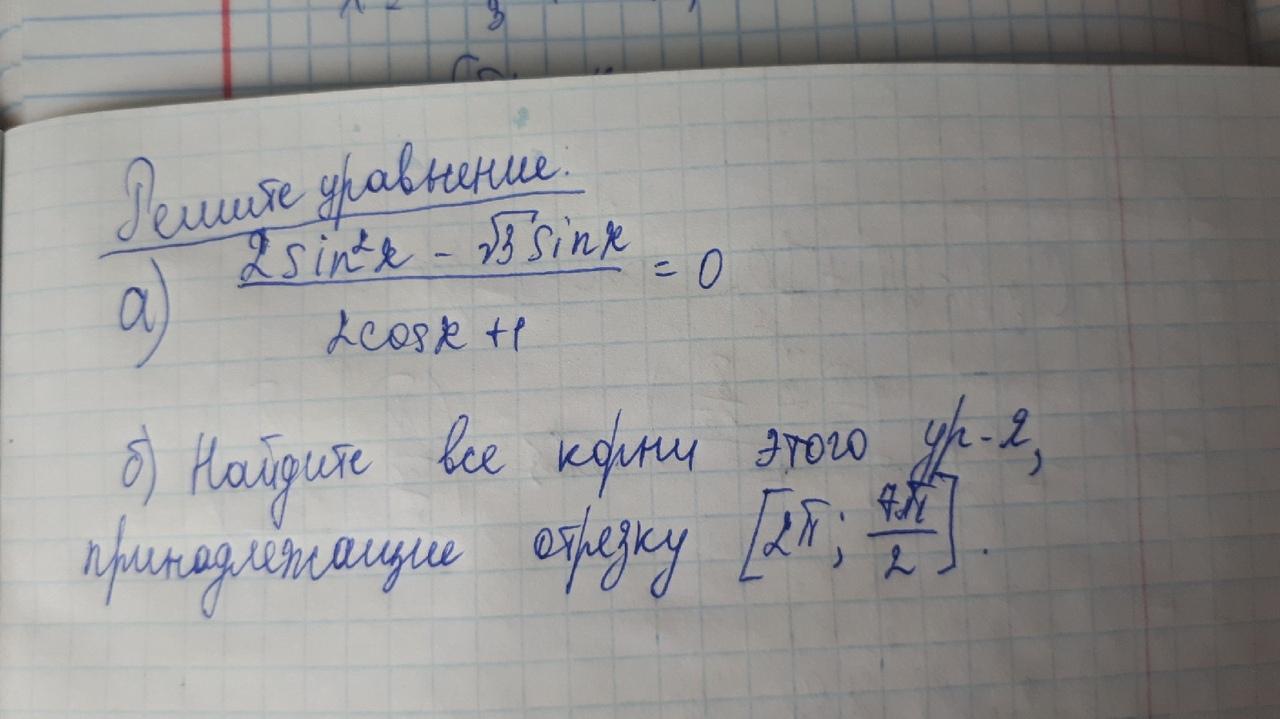 Решите уравнение.
а) (2sin²x - √3sinx)/(2cosx+1) = 0
б) Найдите все корни этого ур-я,
принадлежащие отрезку [2π; 7π/2].